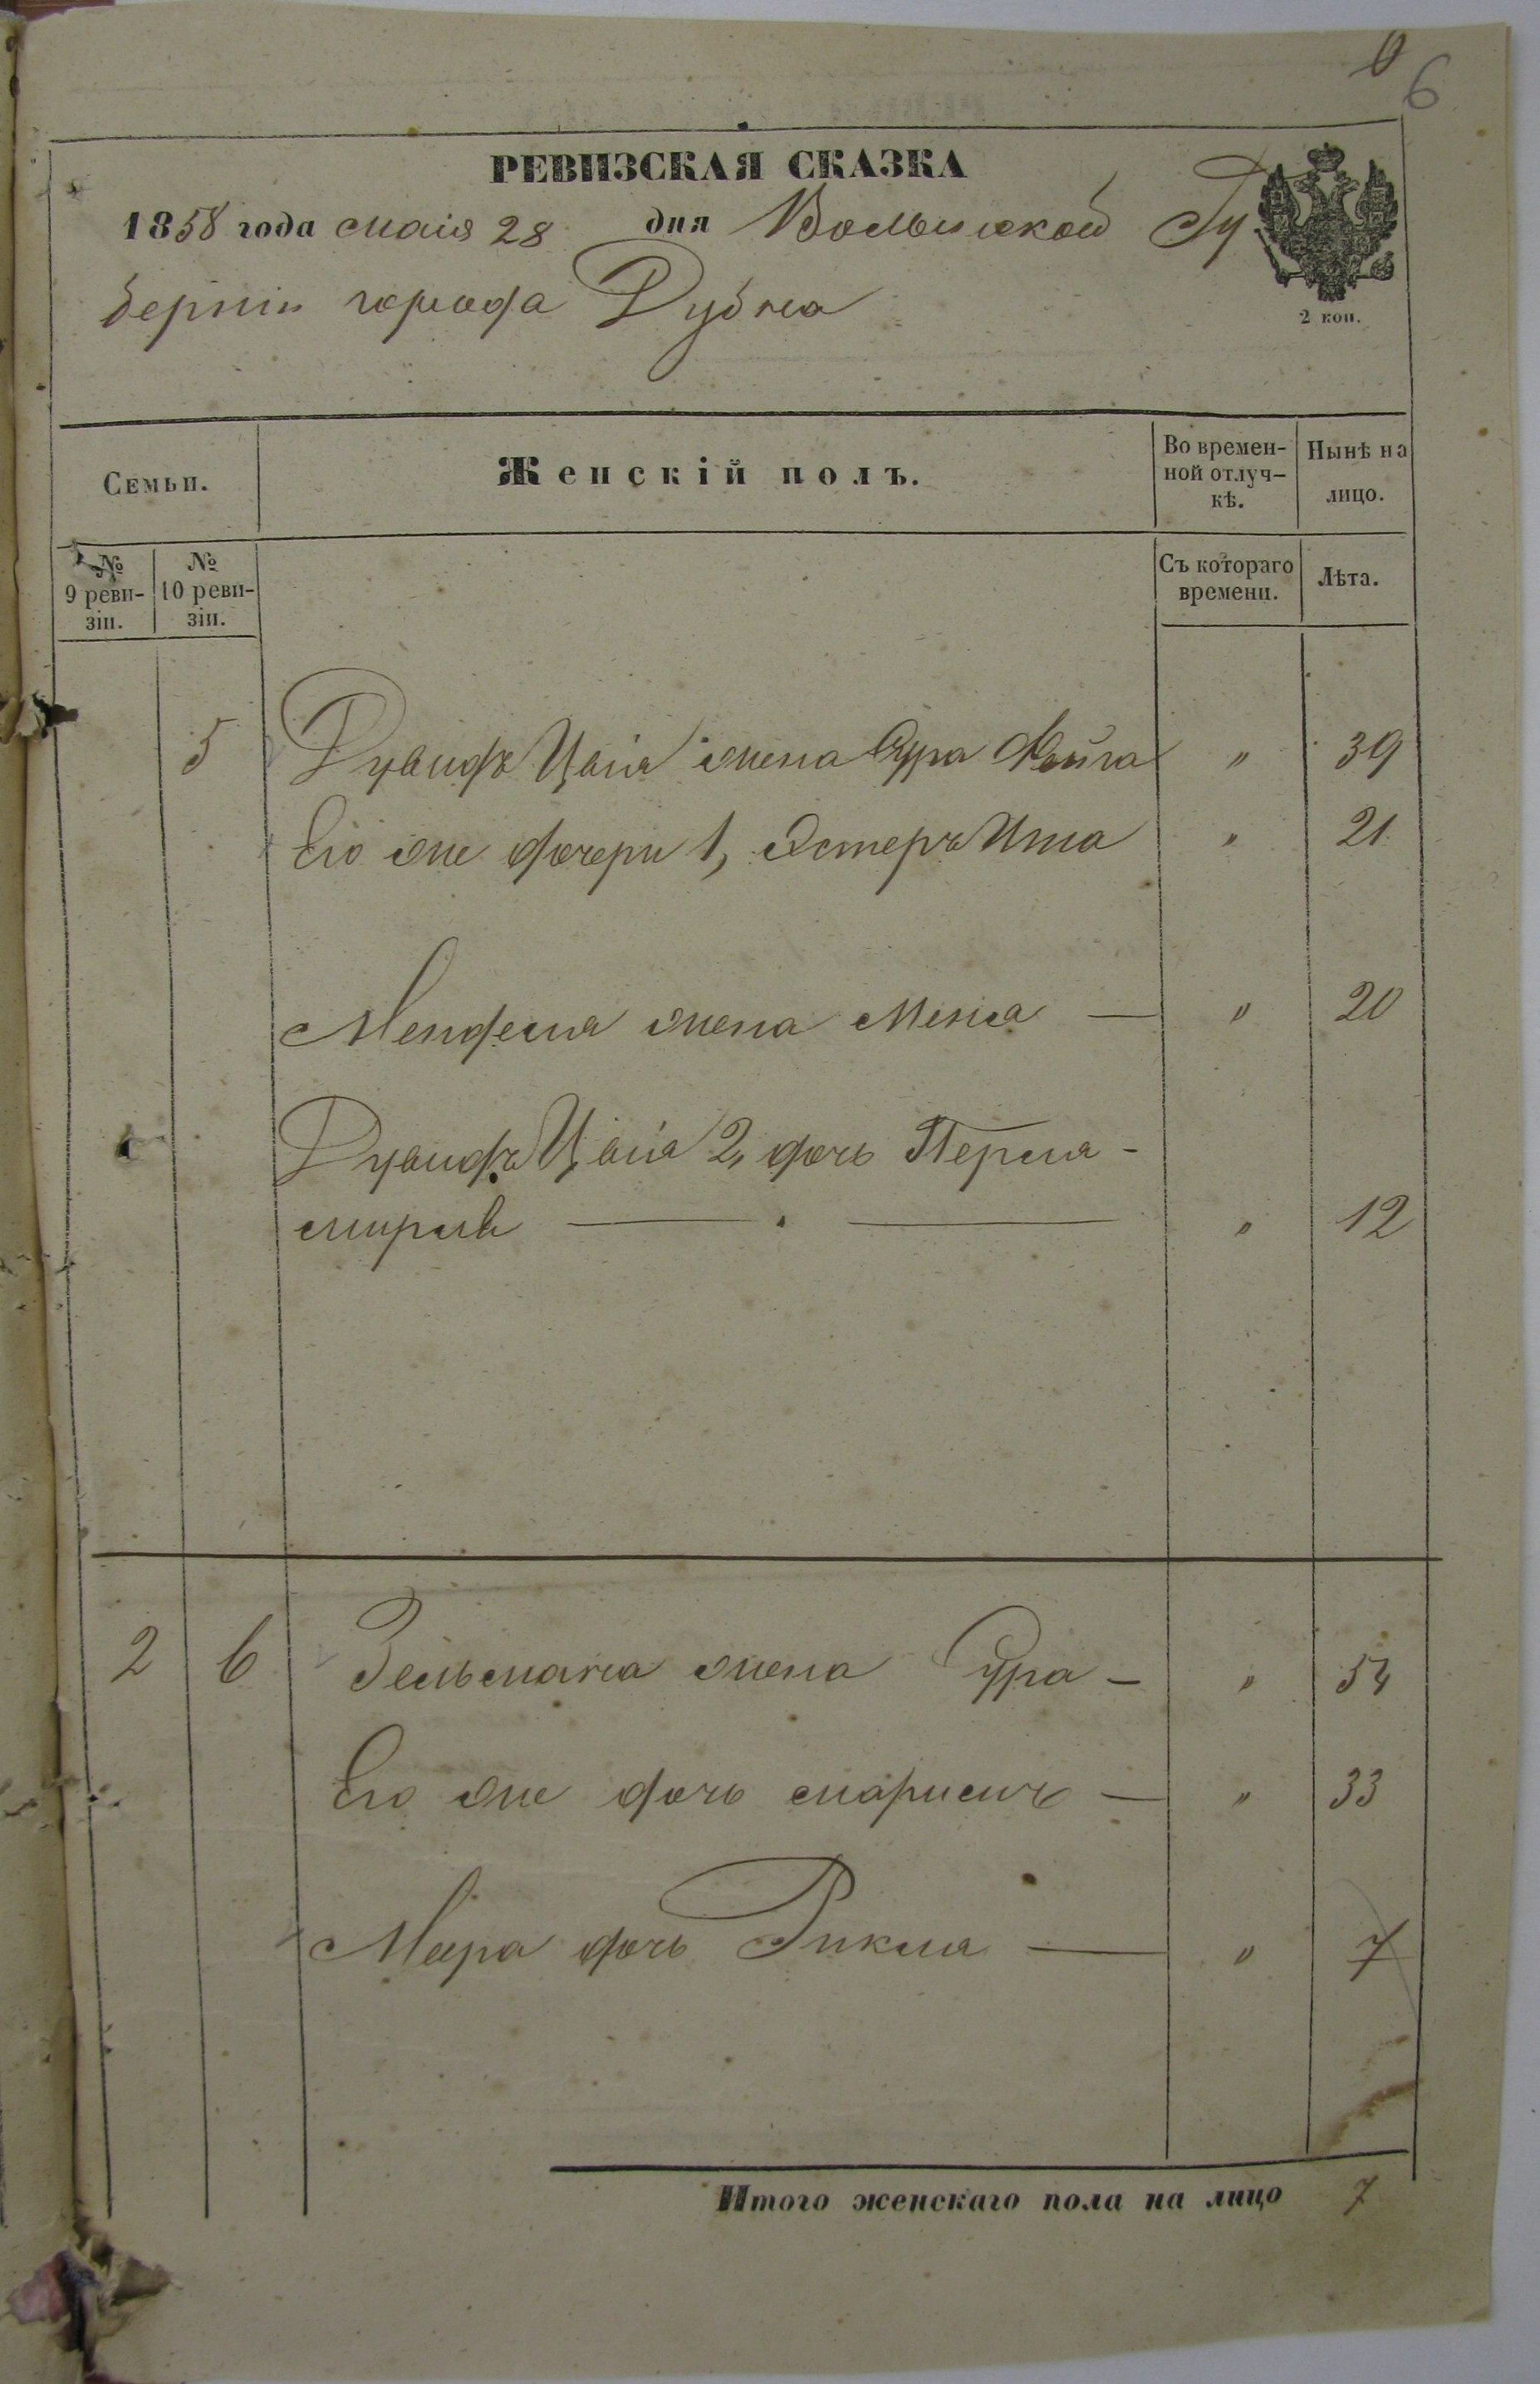 6
РЕВИЗСКАЯ СКАЗКА
1858 года маія 28 дня Волынской Гу
берніи города Дубна
2 коп.
Семьи.
Женскій полъ.
Во времен-
ной отлуч-
кѣ.
Нынѣ на
лицо.
№
9 реви-
зіи.
№
10 реви-
зіи.
Съ котораго
времени.
Лѣта.
5 Дувидъ Цвія жена Сура Фейга " 39
Его же дочери 1, Эстеръ Ита " 21
Менделя жена Меня — " 20
Дувидъ Цвія 2, дочь Перля-
мирля — " 12
2 6 Зельмана жена Сура — " 54
Его же дочь — " 33
Меера дочь Рикля — " 7
Итого женскаго пола на лицо 7